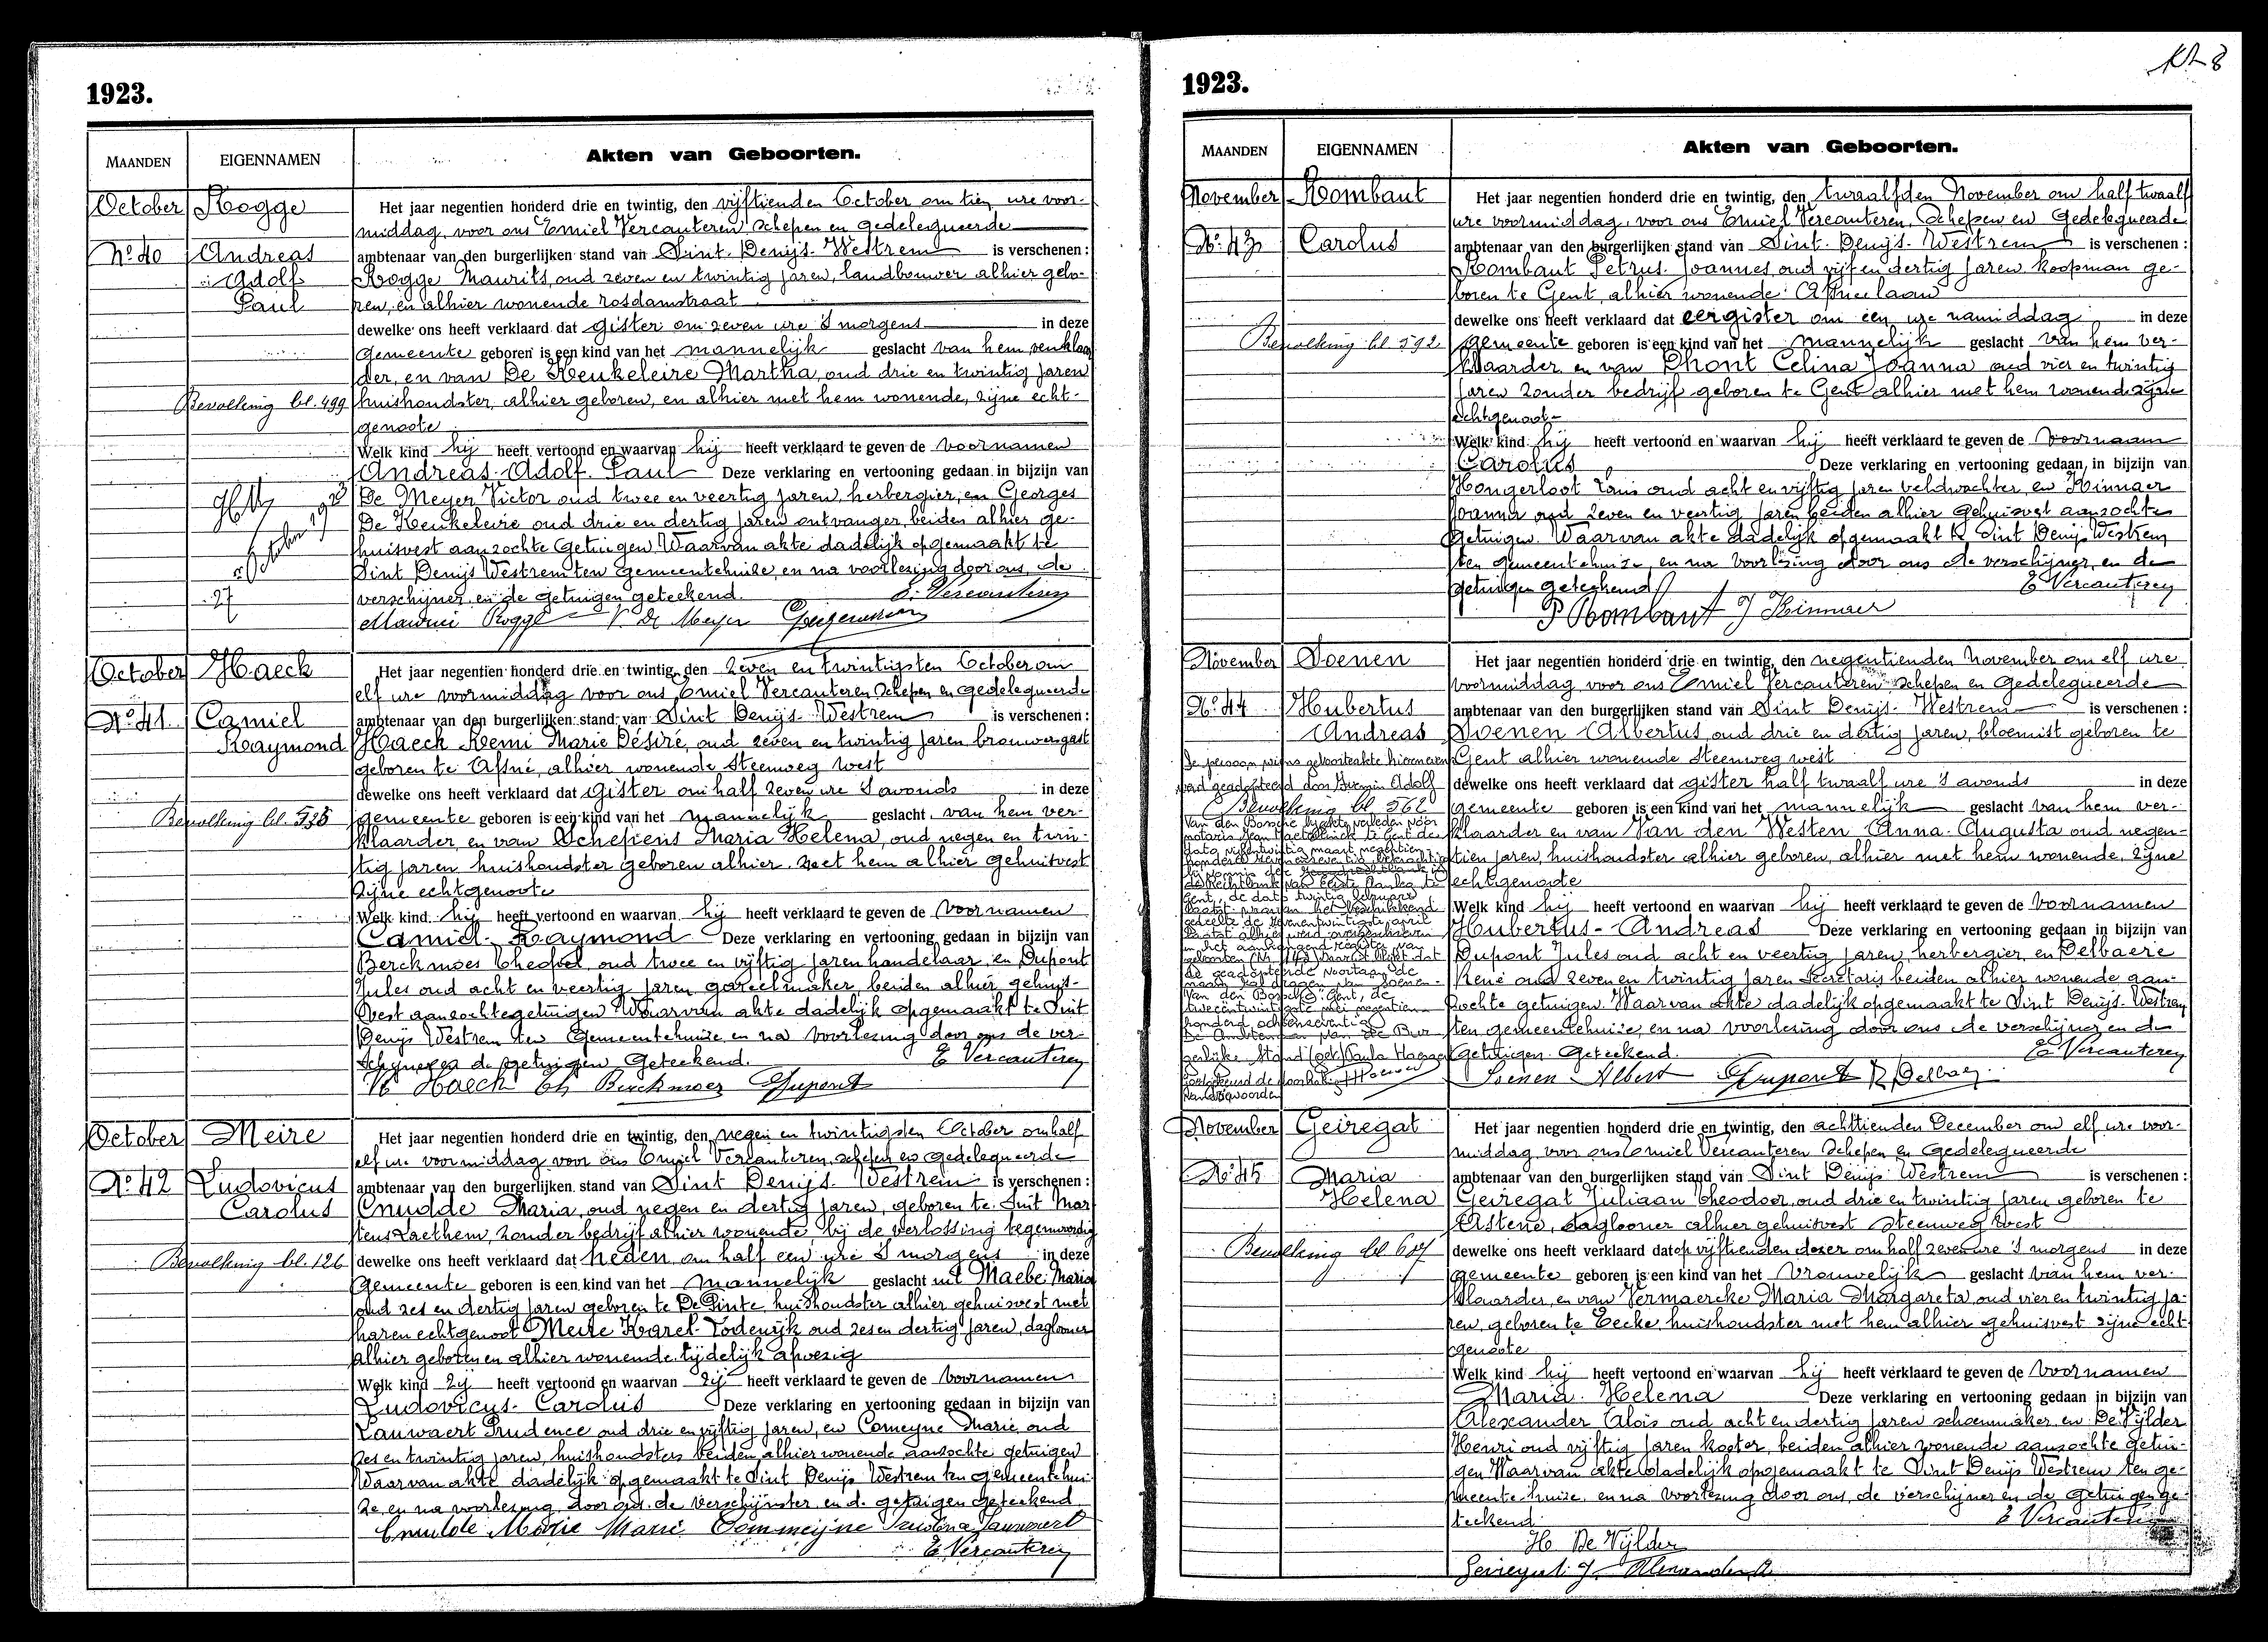 1923.
MAANDEN
EIGENNAMEN
Akten van Geboorten.
October
Rogge
No. 40
Andreas
Adolf
Paul
Bevolking bl. 499
Het jaar negentien honderd drie en twintig, den vijftienden October om tien ure voor-
middag, voor ons Emiel Vercauteren, schepen en gedelegueerde
ambtenaar van den burgerlijken stand van Sint. Denijs. Westrem is verschenen :
Rogge Maurits, oud zeven en twintig jaren, landbouwer alhier gebo-
ren, en alhier wonende rosdamstraat
dewelke ons heeft verklaard dat gister om zeven ure 's morgens in deze
gemeente geboren is een kind van het mannelijk geslacht van hem verklaar
der, en van De Keukeleire Martha, oud drie en twintig jaren
huishoudster, alhier geboren, en alhier met hem wonende, zijne echt-
genoote
Welk kind hij heeft vertoond en waarvan hij heeft verklaard te geven de voornamen
Andreas-Adolf. Paul Deze verklaring en vertooning gedaan in bijzijn van
De Meyer Victor oud twee en veertig jaren, herbergier, en Georges
De Keukeleire oud drie en dertig jaren ontvanger, beiden alhier ge-
huisvest aanzochte Getuigen. Waarvan akte dadelijk opgemaakt te
Sint Denijs Westrem ten gemeentehuize, en na voorlezing door ons, de
verschijner, en de getuigen geteekend. E. Vercauteren
Rogge V. De Meyer
27
October
Haeck
No. 41.
Camiel
Raymond
Bevolking bl. 535
Het jaar negentien honderd drie en twintig, den zeven en twintigsten October om
elf ure voormiddag voor ons Emiel Vercauteren schepen en gedelegueerde
ambtenaar van den burgerlijken stand van Sint Denijs-Westrem is verschenen :
Haeck Remi Marie Désiré, oud zeven en twintig jaren brouwersgast
geboren te Afsné, alhier wonende Steenweg west
dewelke ons heeft verklaard dat gister om half zeven ure 's avonds in deze
gemeente geboren is een kind van het mannelijk geslacht. van hem ver-
klaarder, en van Schepens Maria Helena, oud negen en twin-
tig jaren huishoudster geboren alhier. met hem alhier gehuisvest
zijne echtgenoote
Welk kind hij heeft vertoond en waarvan hij heeft verklaard te geven de voornamen
Camiel-Raymond Deze verklaring en vertooning gedaan in bijzijn van
Berckmoes oud twee en vijftig jaren handelaar en Dupont
Jules oud acht en veertig jaren gareelmaker, beiden alhier gehuis-
vest aanzochte getuigen Waarvan akte dadelijk opgemaakt te Sint
Denijs Westrem ten Gemeentehuize en na voorlezing door ons de ver-
schijner en de getuigen Geteekend. E Vercauteren
Haeck Ch Berckmoes Dupont
October
Meire
No. 42
Ludovicus
Carolus
Bevolking bl. 126
Het jaar negentien honderd drie en twintig, den negen en twintigsten October om half
elf ure voormiddag voor ons Emiel Vercauteren, schepen en gedelegueerde
ambtenaar van den burgerlijken stand van Sint Denijs. Westrem is verschenen :
Cnudde Maria, oud negen en dertig jaren, geboren te Sint Mar
tens Laethem, zonder bedrijf alhier wonende, bij de verlossing tegenwoordig
dewelke ons heeft verklaard dat heden, om half een ure 's morgens in deze
gemeente geboren is een kind van het mannelijk geslacht uit Maebe Maria
oud zes en dertig jaren geboren te De Pinte, huishoudster alhier gehuisvest met
haren echtgenoot Meire Karel-Lodewijk oud zes en dertig jaren, daglooner
alhier geboren en alhier wonende tijdelijk afwezig
Welk kind zij heeft vertoond en waarvan zij heeft verklaard te geven de voornamen
Ludovicus-Carolus Deze verklaring en vertooning gedaan in bijzijn van
Lauwaert Prudence oud drie en vijftig jaren, en Comeyne Marie oud
zes en twintig jaren, huishoudsters beiden alhier wonende aanzochte getuigen
Waarvan akte dadelijk opgemaakt te Sint Denijs Westrem ten gemeentehui-
ze, en na voorlezing, door ons, de verschijnster, en de getuigen geteekend
Cnudde Marie Marie Commeijne
E Vercauteren
1923.
MAANDEN
EIGENNAMEN
Akten van Geboorten.
November
Rombaut
No. 43
Carolus
Bevolking bl 592
Het jaar negentien honderd drie en twintig, den twaalfden November om half twaalf
ure voormiddag, voor ons Emiel Vercauteren, Schepen en Gedelegueerde
ambtenaar van den burgerlijken stand van Sint. Denijs. Westrem is verschenen :
Rombaut Petrus. Joannes, oud vijf en dertig jaren koopman ge-
boren te Gent, alhier wonende Afsneelaan
dewelke ons heeft verklaard dat eergister om een ure namiddag in deze
gemeente geboren is een kind van het mannelijk geslacht van hem ver-
klaarder en van Dhont Celina Joanna oud vier en twintig
jaren zonder bedrijf geboren te Gent alhier met hem wonende zijne
echtgenoot-
Welk kind hij heeft vertoond en waarvan hij heeft verklaard te geven de voornaam
Carolus Deze verklaring en vertooning gedaan in bijzijn van
Hongerloot Louis oud acht en vijftig jaren veldwachter, en Kinnaer
Joanna oud zeven en veertig jaren beiden alhier gehuisvest aanzochte
getuigen. Waarvan akte dadelijk opgemaakt te Sint Denijs Westrem
ten gemeentehuize, en na voorlezing door ons de verschijner, en de
getuigen geteekend E Vercauteren
P Rombaut J Kinnaer
November
Soenen
No. 44
Hubertus
Andreas
De persoon wiens geboorteakte hiernevens
werd geadopteerd door Adolf
Bevolking bl 562
Van den Bossche
Het jaar negentien honderd drie en twintig, den negentienden November om elf ure
voormiddag, voor ons Emiel Vercauteren schepen en Gedelegueerde
ambtenaar van den burgerlijken stand van Sint Denijs-Westrem is verschenen :
Soenen Albertus, oud drie en dertig jaren, bloemist geboren te
Gent alhier wonende Steenweg west
dewelke ons heeft verklaard dat gister half twaalf ure 's avonds in deze
gemeente geboren is een kind van het mannelijk geslacht van hem ver-
klaarder en van Van den Westen Anna-Augusta oud negen-
tien jaren, huishoudster alhier geboren, alhier met hem wonende, zijne
echtgenoote
Welk kind hij heeft vertoond en waarvan hij heeft verklaard te geven de voornamen
Hubertus-Andreas Deze verklaring en vertooning gedaan in bijzijn van
Dupont Jules oud acht en veertig jaren, herbergier en Delbaere
René oud zeven en twintig jaren Secretaris beiden alhier wonende aan-
zochte getuigen. Waarvan akte dadelijk opgemaakt te Sint Denijs-Westrem
ten gemeentehuize, en na voorlezing door ons de verschijner en de
Getuigen. Geteekend. E Vercauteren
Soenen Albert Dupont R Delbaere
November
Geiregat
No. 45
Maria
Helena
Bevolking bl 607
Het jaar negentien honderd drie en twintig, den achttienden December om elf ure voor-
middag voor ons Emiel Vercauteren Schepen en Gedelegueerde
ambtenaar van den burgerlijken stand van Sint Denijs Westrem is verschenen :
Geiregat Juliaan Theodoor, oud drie en twintig jaren geboren te
Astene, daglooner alhier gehuisvest Steenweg West
dewelke ons heeft verklaard dat op vijftienden dezer om half zeven ure 's morgens in deze
gemeente geboren is een kind van het Vrouwelijk geslacht van hem ver-
klaarder, en van Vermaercke Maria Margareta, oud vier en twintig ja-
ren, geboren te Eecke, huishoudster met hem alhier gehuisvest zijne echt
genoote
Welk kind hij heeft vertoond en waarvan hij heeft verklaard te geven de voornamen
Maria. Helena Deze verklaring en vertooning gedaan in bijzijn van
Alexander Alois oud acht en dertig jaren schoenmaker en De Vijlder
Henri oud vijftig jaren koster, beiden alhier wonende aanzochte getui-
gen Waarvan akte dadelijk opgemaakt te Sint Denijs Westrem ten ge-
meente huize, en na voorlezing door ons, de verschijner en de getuigen ge-
teekend E Vercauteren
H De Vijlder
Geiregat J Alexander A